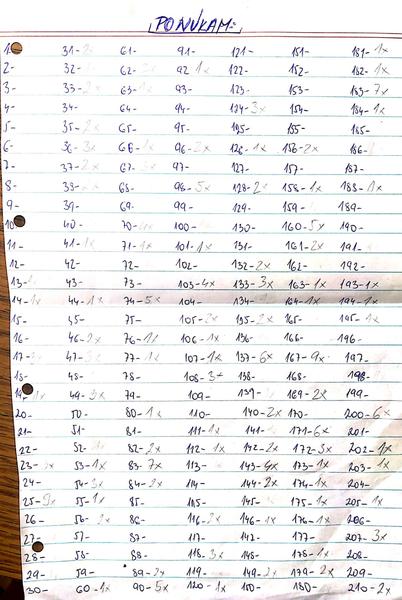 PONÚKAM:
1- 31- 61- 91- 121- 151- 181-1x
2- 32- 62- 92-1x 122- 152- 182-1x
3- 33-2x 63- 93- 123- 153- 183-7x
4- 34- 64- 94- 124-3x 154- 184-1x
5- 35-2x 65- 95- 125- 155- 185-
6- 36-3x 66-1x 96-2x 126-1x 156-2x 186-
7- 37-2x 67- 97- 127- 157- 187-
8- 38- 68- 98-5x 128-2x 158-1x 188-1x
9- 39- 69- 99- 129- 159- 189-
10- 40- 70- 100- 130- 160-5x 190-
11- 41- 71- 101-1x 131- 161-2x 191-
12- 42- 72- 102- 132-2x 162- 192-
13- 43- 73- 103-4x 133-3x 163-1x 193-1x
14-1x 44-1x 74-5x 104- 134- 164-1x 194-1x
15- 45- 75- 105-2x 135-2x 165- 195-
16- 46-2x 76-1x 106-1x 136- 166- 196-
17- 47- 77-1x 107-1x 137-6x 167-9x 197-
18- 48- 78- 108-3x 138- 168- 198-
19- 49-3x 79- 109- 139- 169-2x 199-
20- 50- 80-1x 110- 140-2x 170- 200-6x
21- 51- 81- 111- 141- 171-6x 201-
22- 52- 82-2x 112-1x 142-2x 172-3x 202-1x
23- 53-1x 83-7x 113- 143-4x 173-1x 203-1x
24- 54-3x 84-2x 114- 144-2x 174-1x 204-
25- 55-1x 85- 115- 145- 175-1x 205-1x
26- 56- 86- 116-2x 146-1x 176-1x 206-
27- 57- 87- 117- 147- 177- 207-3x
28- 58- 88- 118-3x 148- 178-1x 208-
29- 59- 89-2x 119- 149-2x 179-2x 209-
30- 60-1x 90-5x 120-1x 150- 180- 210-2x